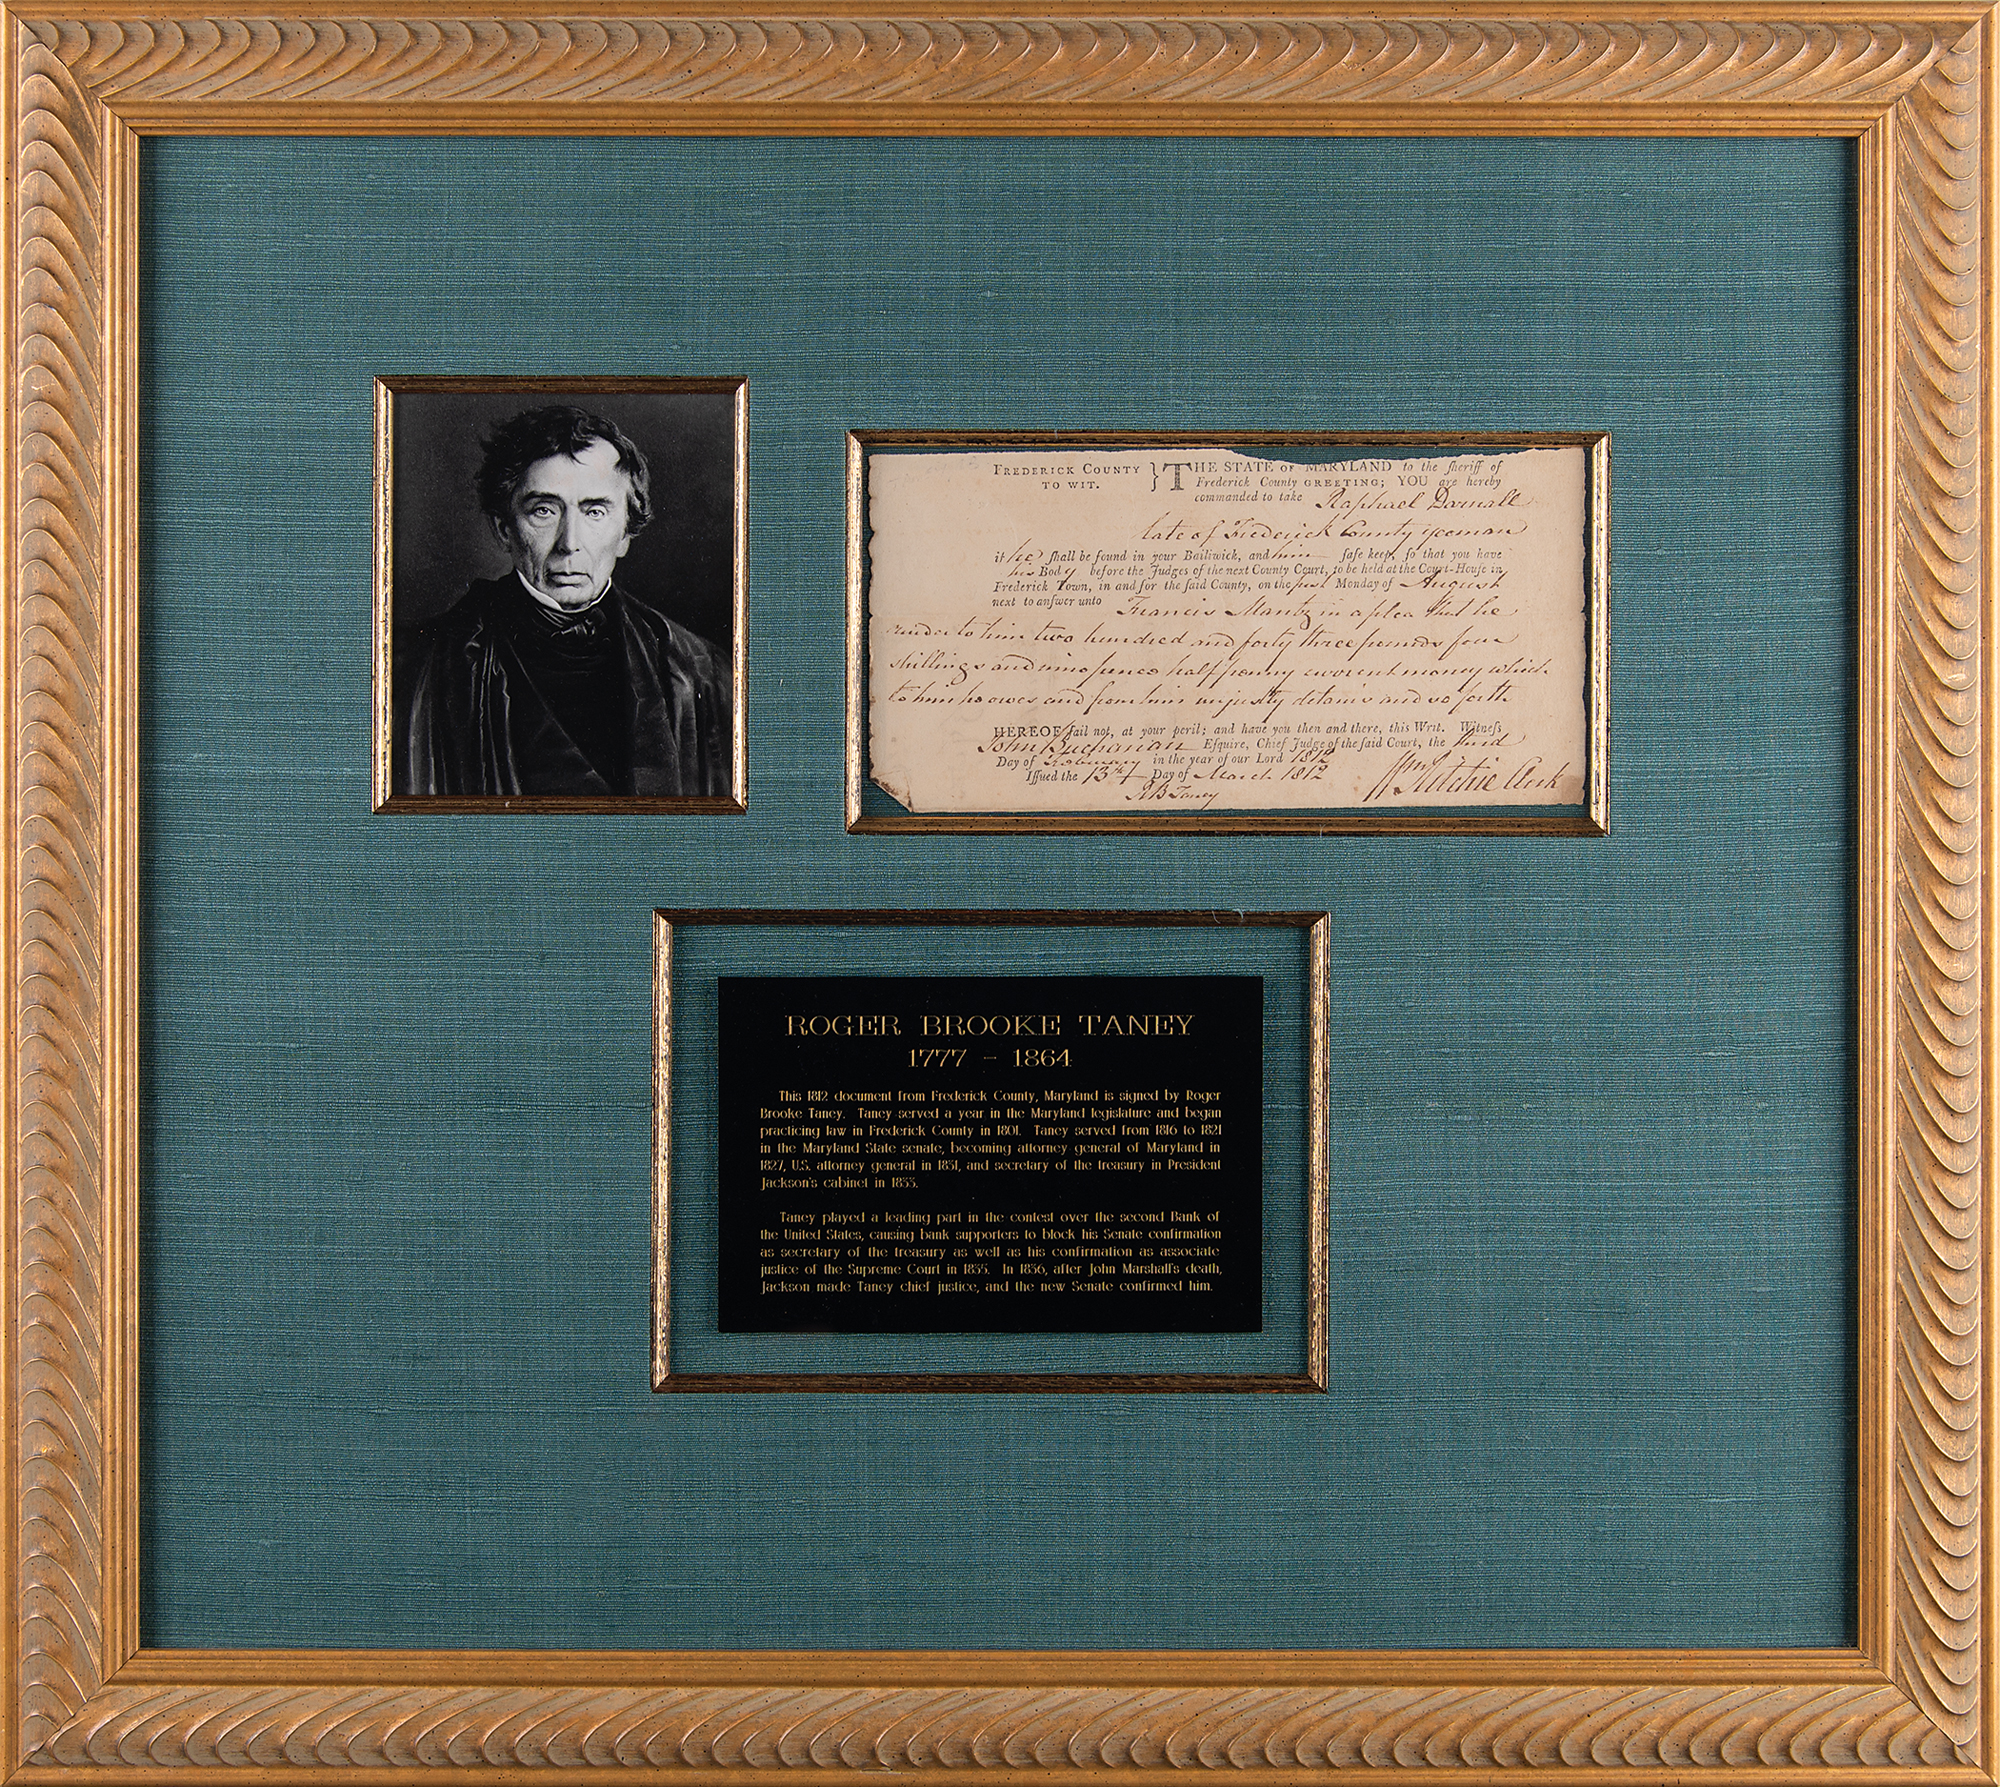 FREDERICK COUNTY } THE STATE OF MARYLAND to the ſheriff of
TO WIT. Frederick County GREETING; YOU are hereby
commanded to take Raphael Darnall
late of Frederick County yeoman
if he ſhall be found in your Bailiwick, and him ſafe keep, ſo that you have
his Body before the Judges of the next County Court, to be held at the Court-Houſe in
Frederick Town, in and for the ſaid County, on the Monday of August
next to anſwer unto Francis Mantz in a plea that he
render to him two hundred and forty three pounds four
shillings and nine pence half penny current money which
to him he owes and from him unjustly detains and so forth
HEREOF fail not, at your peril; and have you then and there, this Writ. Witneſs
John Buchanan Eſquire, Chief Judge of the ſaid Court, the
Day of February in the year of our Lord 1812
Iſſued the 13th Day of March 1812 Wm Ritchie Clerk
RB Taney
ROGER BROOKE TANEY
1777 - 1864
This 1812 document from Frederick County, Maryland is signed by Roger
Brooke Taney. Taney served a year in the Maryland legislature and began
practicing law in Frederick County in 1801. Taney served from 1816 to 1821
in the Maryland State senate, becoming attorney general of Maryland in
1827, U.S. attorney general in 1831, and secretary of the treasury in President
Jackson's cabinet in 1833.
Taney played a leading part in the contest over the second Bank of
the United States, causing bank supporters to block his Senate confirmation
as secretary of the treasury as well as his confirmation as associate
justice of the Supreme Court in 1835. In 1836, after John Marshall's death,
Jackson made Taney chief justice, and the new Senate confirmed him.